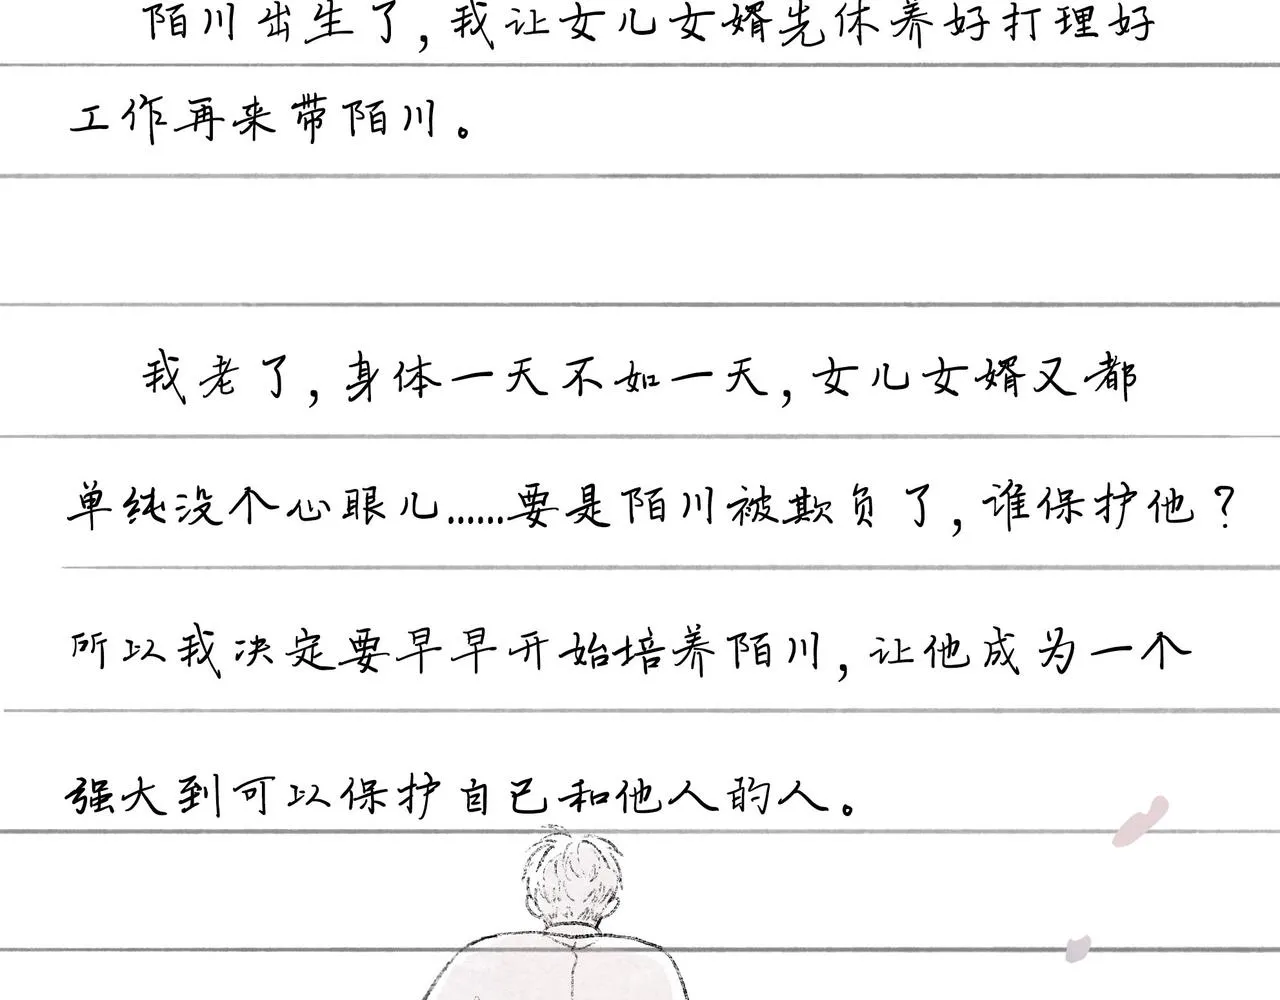 陌川出生了，我让女儿女婿先休养好打理好
工作再来带陌川。
我老了，身体一天不如一天，女儿女婿又都
单纯没个心眼儿……要是陌川被欺负了，谁保护他？
所以我决定要早早开始培养陌川，让他成为一个
强大到可以保护自己和他人的人。